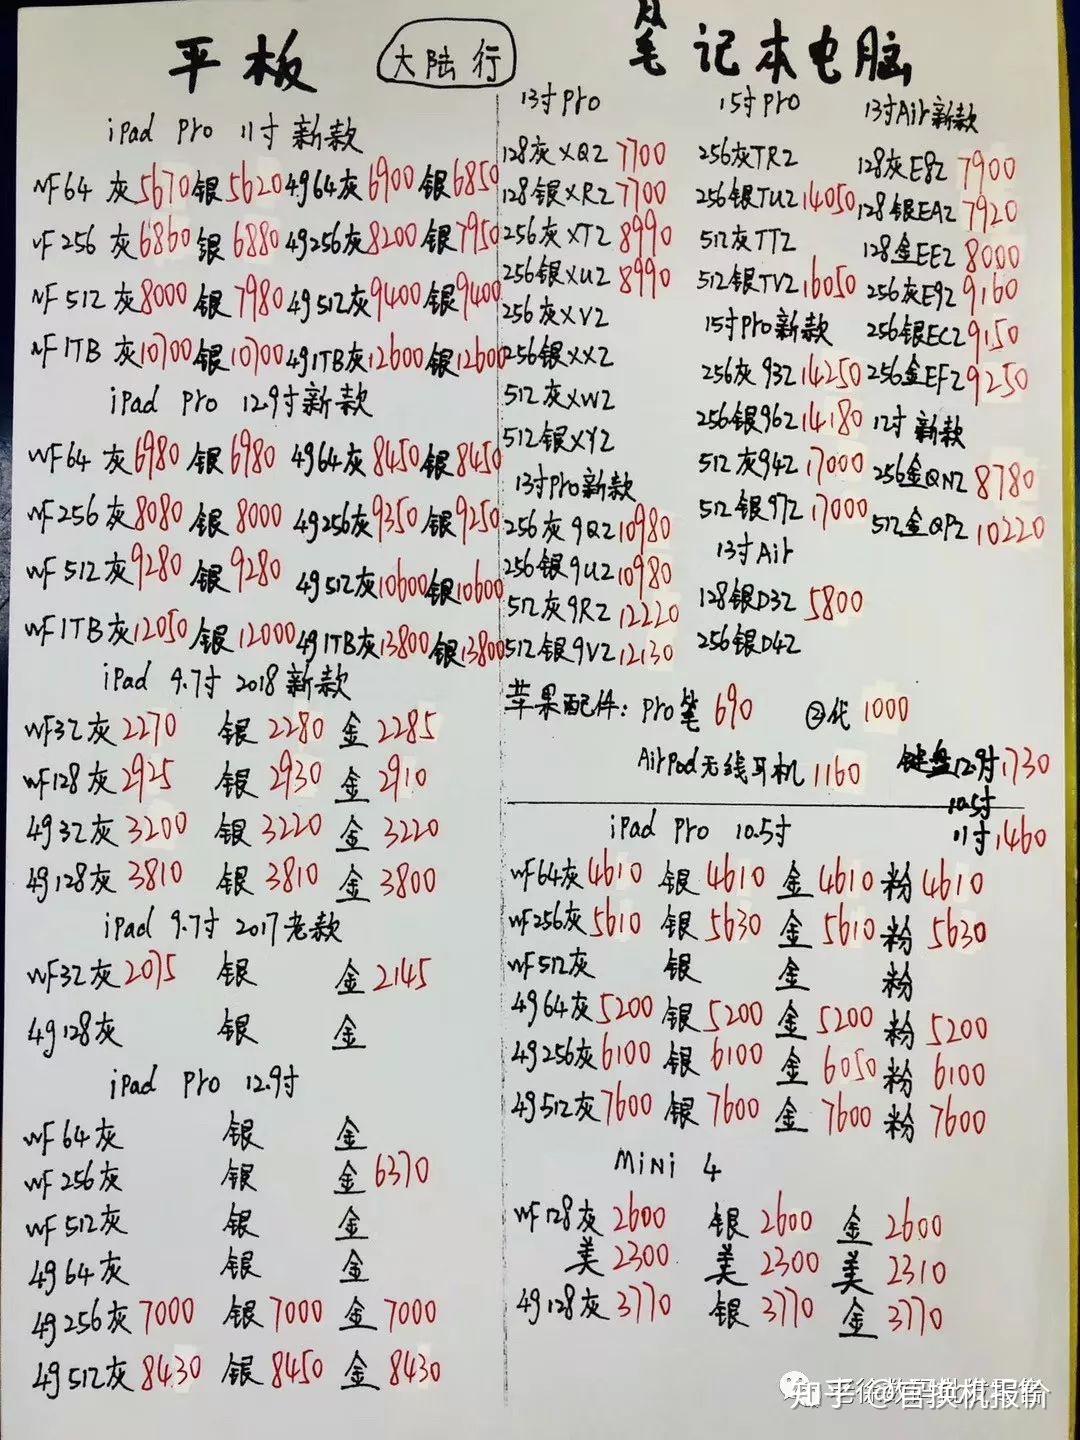 平板
大陆行
iPad Pro 11寸新款
WF64 灰5670 银5620 4964灰6900 银6850
WF256 灰6860 银6880 49256灰8200 银7950
WF512 灰8000 银7980 49512灰9400 银9400
WF1TB 灰10700 银10700 491TB灰12600 银12600
iPad Pro 12.9寸新款
WF64 灰6980 银6980 4964灰8450 银8450
WF256 灰8080 银8000 49256灰9350 银9250
WF512 灰9280 银9280 49512灰10600 银10600
WF1TB 灰12050 银12000 491TB灰13800 银13800
iPad 9.7寸 2018新款
WF32灰2270 银2280 金2285
WF128灰2925 银2930 金2910
4932灰3200 银3220 金3220
49128灰3810 银3810 金3800
iPad 9.7寸 2017老款
WF32灰2075 银 金2145
49128灰 银 金
iPad Pro 12.9寸
WF64灰 银 金
WF256灰 银 金6370
WF512灰 银 金
4964灰 银 金
49256灰7000 银7000 金7000
49512灰8430 银8450 金8430
笔记本电脑
13寸Pro
128灰XQ2 7700
128银XR2 7700
256灰XT2 8990
256银XU2 8990
256灰XV2
256银XX2
512灰XW2
512银XY2
13寸Pro新款
256灰9Q2 10980
256银9U2 10980
512灰9R2 12220
512银9V2 12130
15寸Pro
256灰TR2
256银TU2 14050
512灰TT2
512银TV2 16050
15寸Pro新款
256灰932 14250
256银962 14180
512灰942 17000
512银972 17000
13寸Air
128银D32 5800
256银D42
13寸Air新款
128灰E82 7900
128银EA2 7920
128金EE2 8000
256灰E92 9160
256银EC2 9150
256金EF2 9250
12寸新款
256金QN2 8780
512金QP2 10220
苹果配件: Pro笔 690 ②代 1000
AirPod无线耳机 1160 键盘12.9寸1730
10.5寸
11寸1460
iPad Pro 10.5寸
WF64灰4610 银4610 金4610 粉4610
WF256灰5610 银5630 金5610 粉5630
WF512灰 银 金 粉
4964灰5200 银5200 金5200 粉5200
49256灰6100 银6100 金6050 粉6100
49512灰7600 银7600 金7600 粉7600
MiNi 4
WF128灰2600 银2600 金2600
美2300 美2300 美2310
49128灰3770 银3770 金3770
知乎 @官换机报价